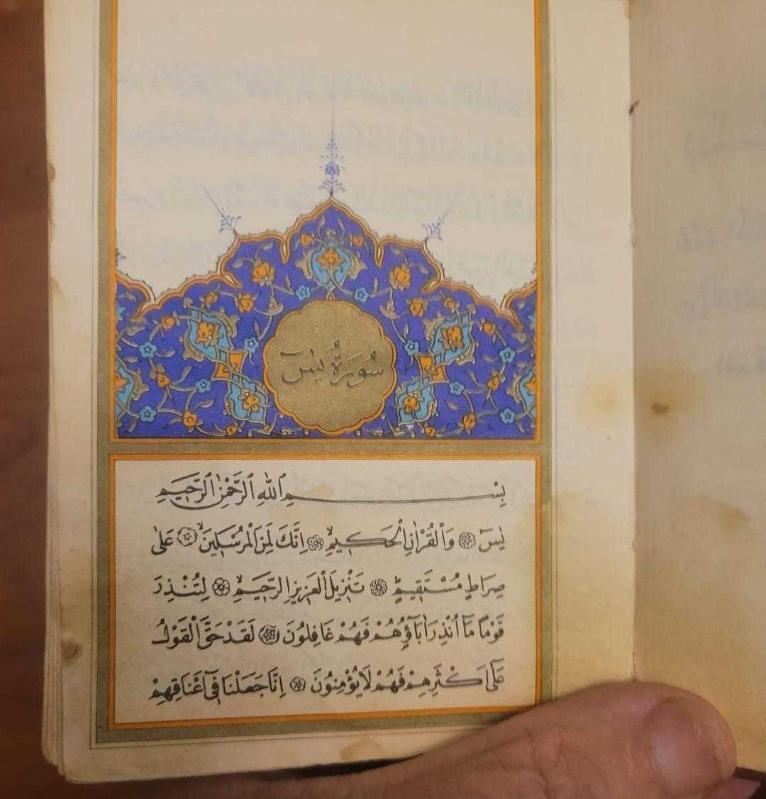 سُورَةُ يٰسٓ
بِسْمِ اللهِ الرَّحْمٰنِ الرَّحٖيمِ
يٰسٓ ۞ وَالْقُرْاٰنِ الْحَكٖيمِۙ ۞ اِنَّكَ لَمِنَ الْمُرْسَلٖينَۙ ۞ عَلٰى
صِرَاطٍ مُسْتَقٖيمٍؕ ۞ تَنْزٖيلَ الْعَزٖيزِ الرَّحٖيمِۙ ۞ لِتُنْذِرَ
قَوْمًا مَٓا اُنْذِرَ اٰبَٓاؤُ۬هُمْ فَهُمْ غَافِلُونَ ۞ لَقَدْ حَقَّ الْقَوْلُ
عَلٰٓى اَكْثَرِهِمْ فَهُمْ لَا يُؤْمِنُونَ ۞ اِنَّا جَعَلْنَا فٖٓى اَعْنَاقِهِمْ